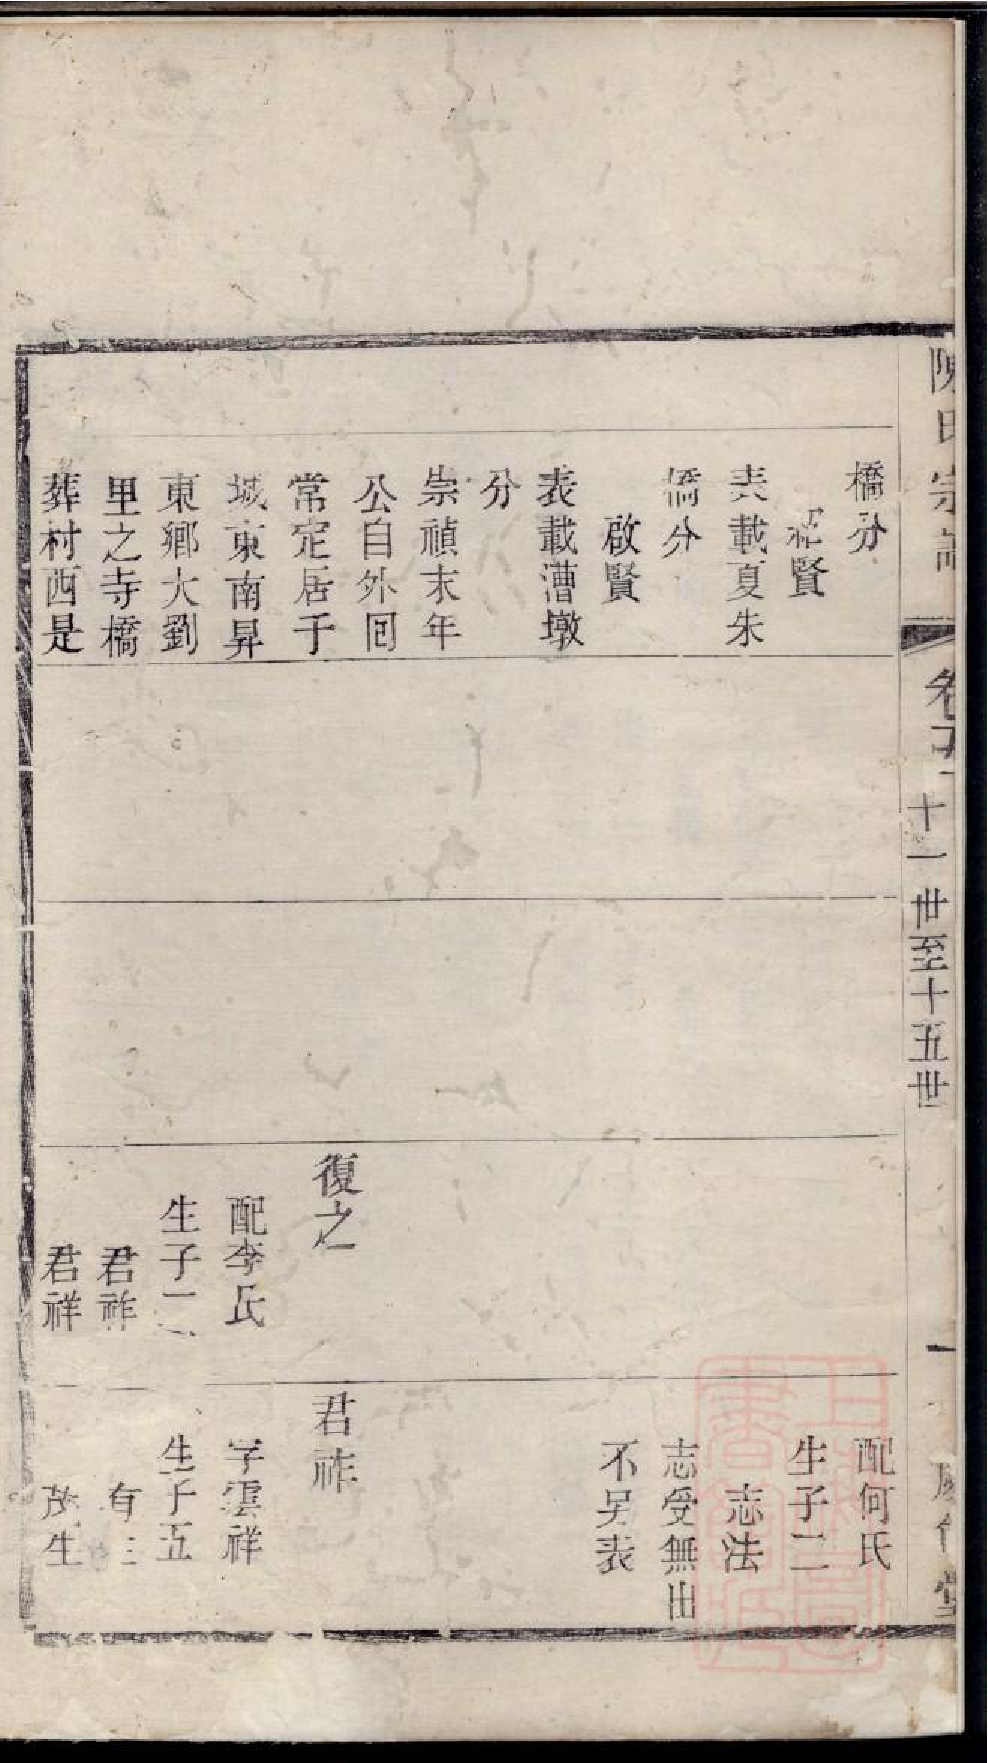 陳氏宗譜
卷五
十一世至十五世
一
橋分
賢
表載夏朱
橋分
啟賢
表載漕墩
分
崇禎末年
公自外回
常定居于
城東南昇
東鄉大劉
里之寺橋
葬村西是
復之
配李氏
生子二
君祚
君祥
配何氏
生子二
志法
志受無出
不另表
君祚
字雲祥
生子五
茂生